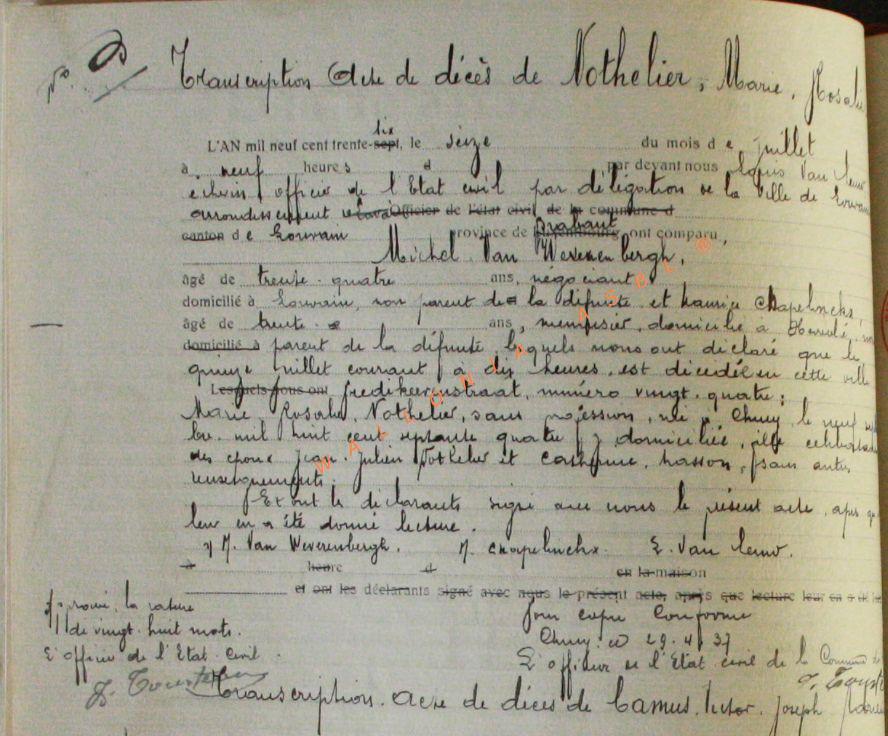 No
Transcription Acte de décès de Nothelier, Marie, Rosalie
L'AN mil neuf cent trente-sept, six le seize du mois de juillet
à neuf heures d par devant nous Louis Van
échevin, officier de l'Etat civil par délégation de la ville de Louvain
arrondissement Officier de l'état civil de la commune d
canton de Louvain province de Brabant ont comparu,
Michel Van Weverenbergh,
âgé de trente-quatre ans, négociant
domicilié à Louvain, non parent de la défunte et Maurice Chapelinckx,
âgé de trente ans, menuisier, domicilié à Héverlé, non
domicilié à parent de la défunte, lesquels nous ont déclaré que le
quinze juillet courant à dix heures, est décédée en cette ville
Lesquels nous ont numéro vingt-quatre;
Marie Rosalie Nothelier, sans profession, née à Chiny le neuf
bre mil huit cent septante quatre y domiciliée, fille célibataire
des époux Jean Julien Nothelier et Catherine Hasson, sans autres
renseignements.
Et ont les déclarants signé avec nous le présent acte, après que
leur en a été donné lecture.
M. Van Weverenbergh. M. Chapelinckx. L. Van
à heure d en la maison
et ont les déclarants signé avec nous le présent acte, après que lecture leur en a été
Approuvé la rature
de vingt-huit mots.
L'officier de l'Etat civil.
Pour copie conforme
Chiny, ce 29.4.37
L'officier de l'Etat civil de la Commune de
Transcription acte de décès de Camus, Victor, Joseph
WALLONIA ASBL ®